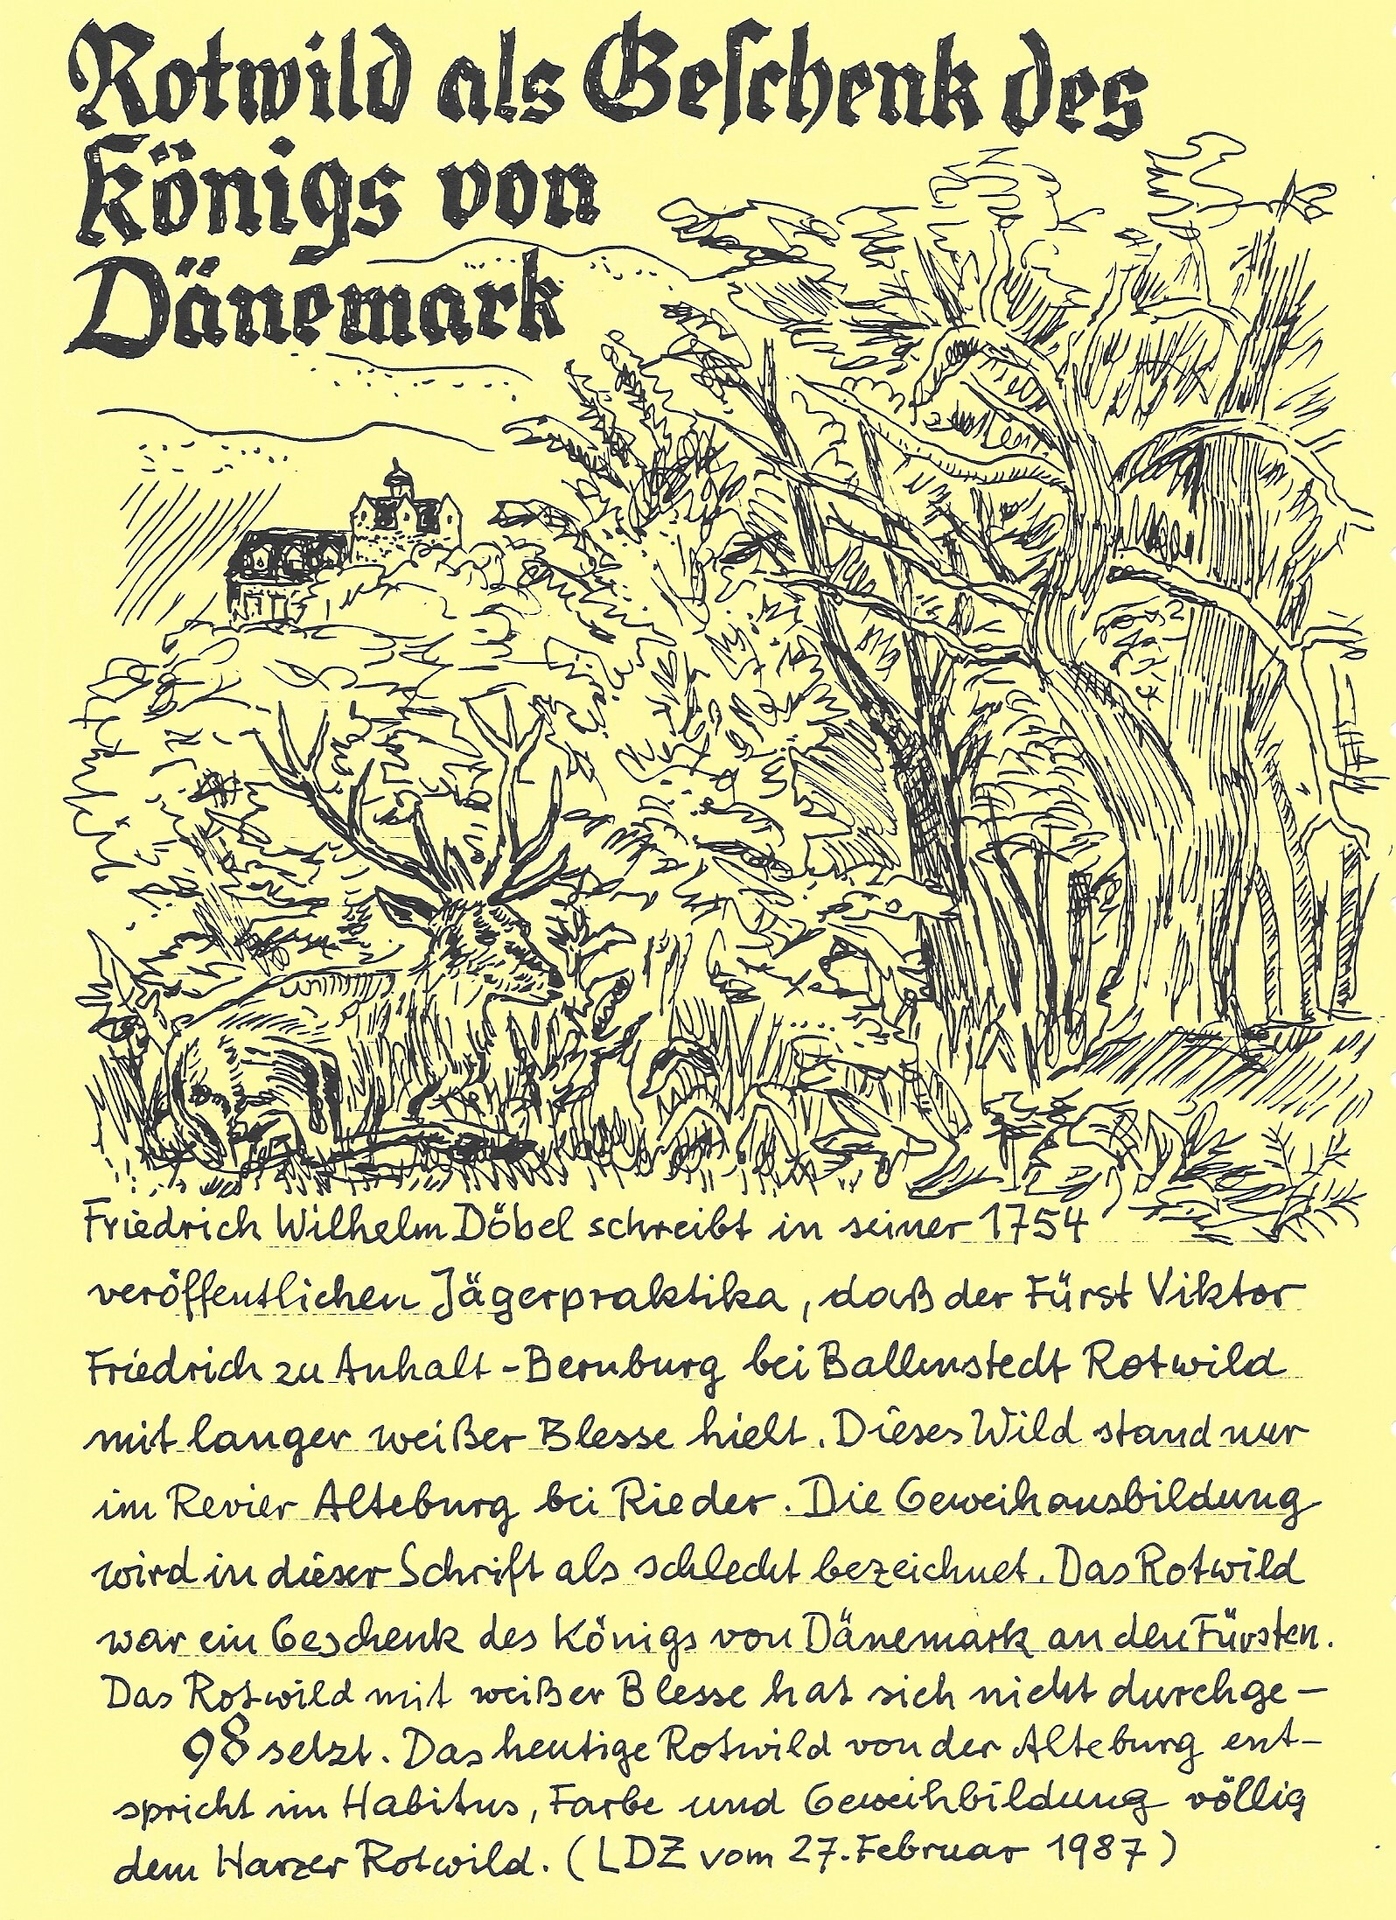 Rotwild als Geschenk des
Königs von
Dänemark
Friedrich Wilhelm Döbel schreibt in seiner 1754
veröffentlichen Jägerpraktika, daß der Fürst Viktor
Friedrich zu Anhalt-Bernburg bei Ballenstedt Rotwild
mit langer weißer Blesse hielt. Dieses Wild stand nur
im Revier Alteburg bei Rieder. Die Geweihausbildung
wird in dieser Schrift als schlecht bezeichnet. Das Rotwild
war ein Geschenk des Königs von Dänemark an den Fürsten.
Das Rotwild mit weißer Blesse hat sich nicht durchge-
98 setzt. Das heutige Rotwild von der Alteburg ent-
spricht im Habitus, Farbe und Geweihbildung völlig
dem Harzer Rotwild. (LDZ vom 27. Februar 1987)